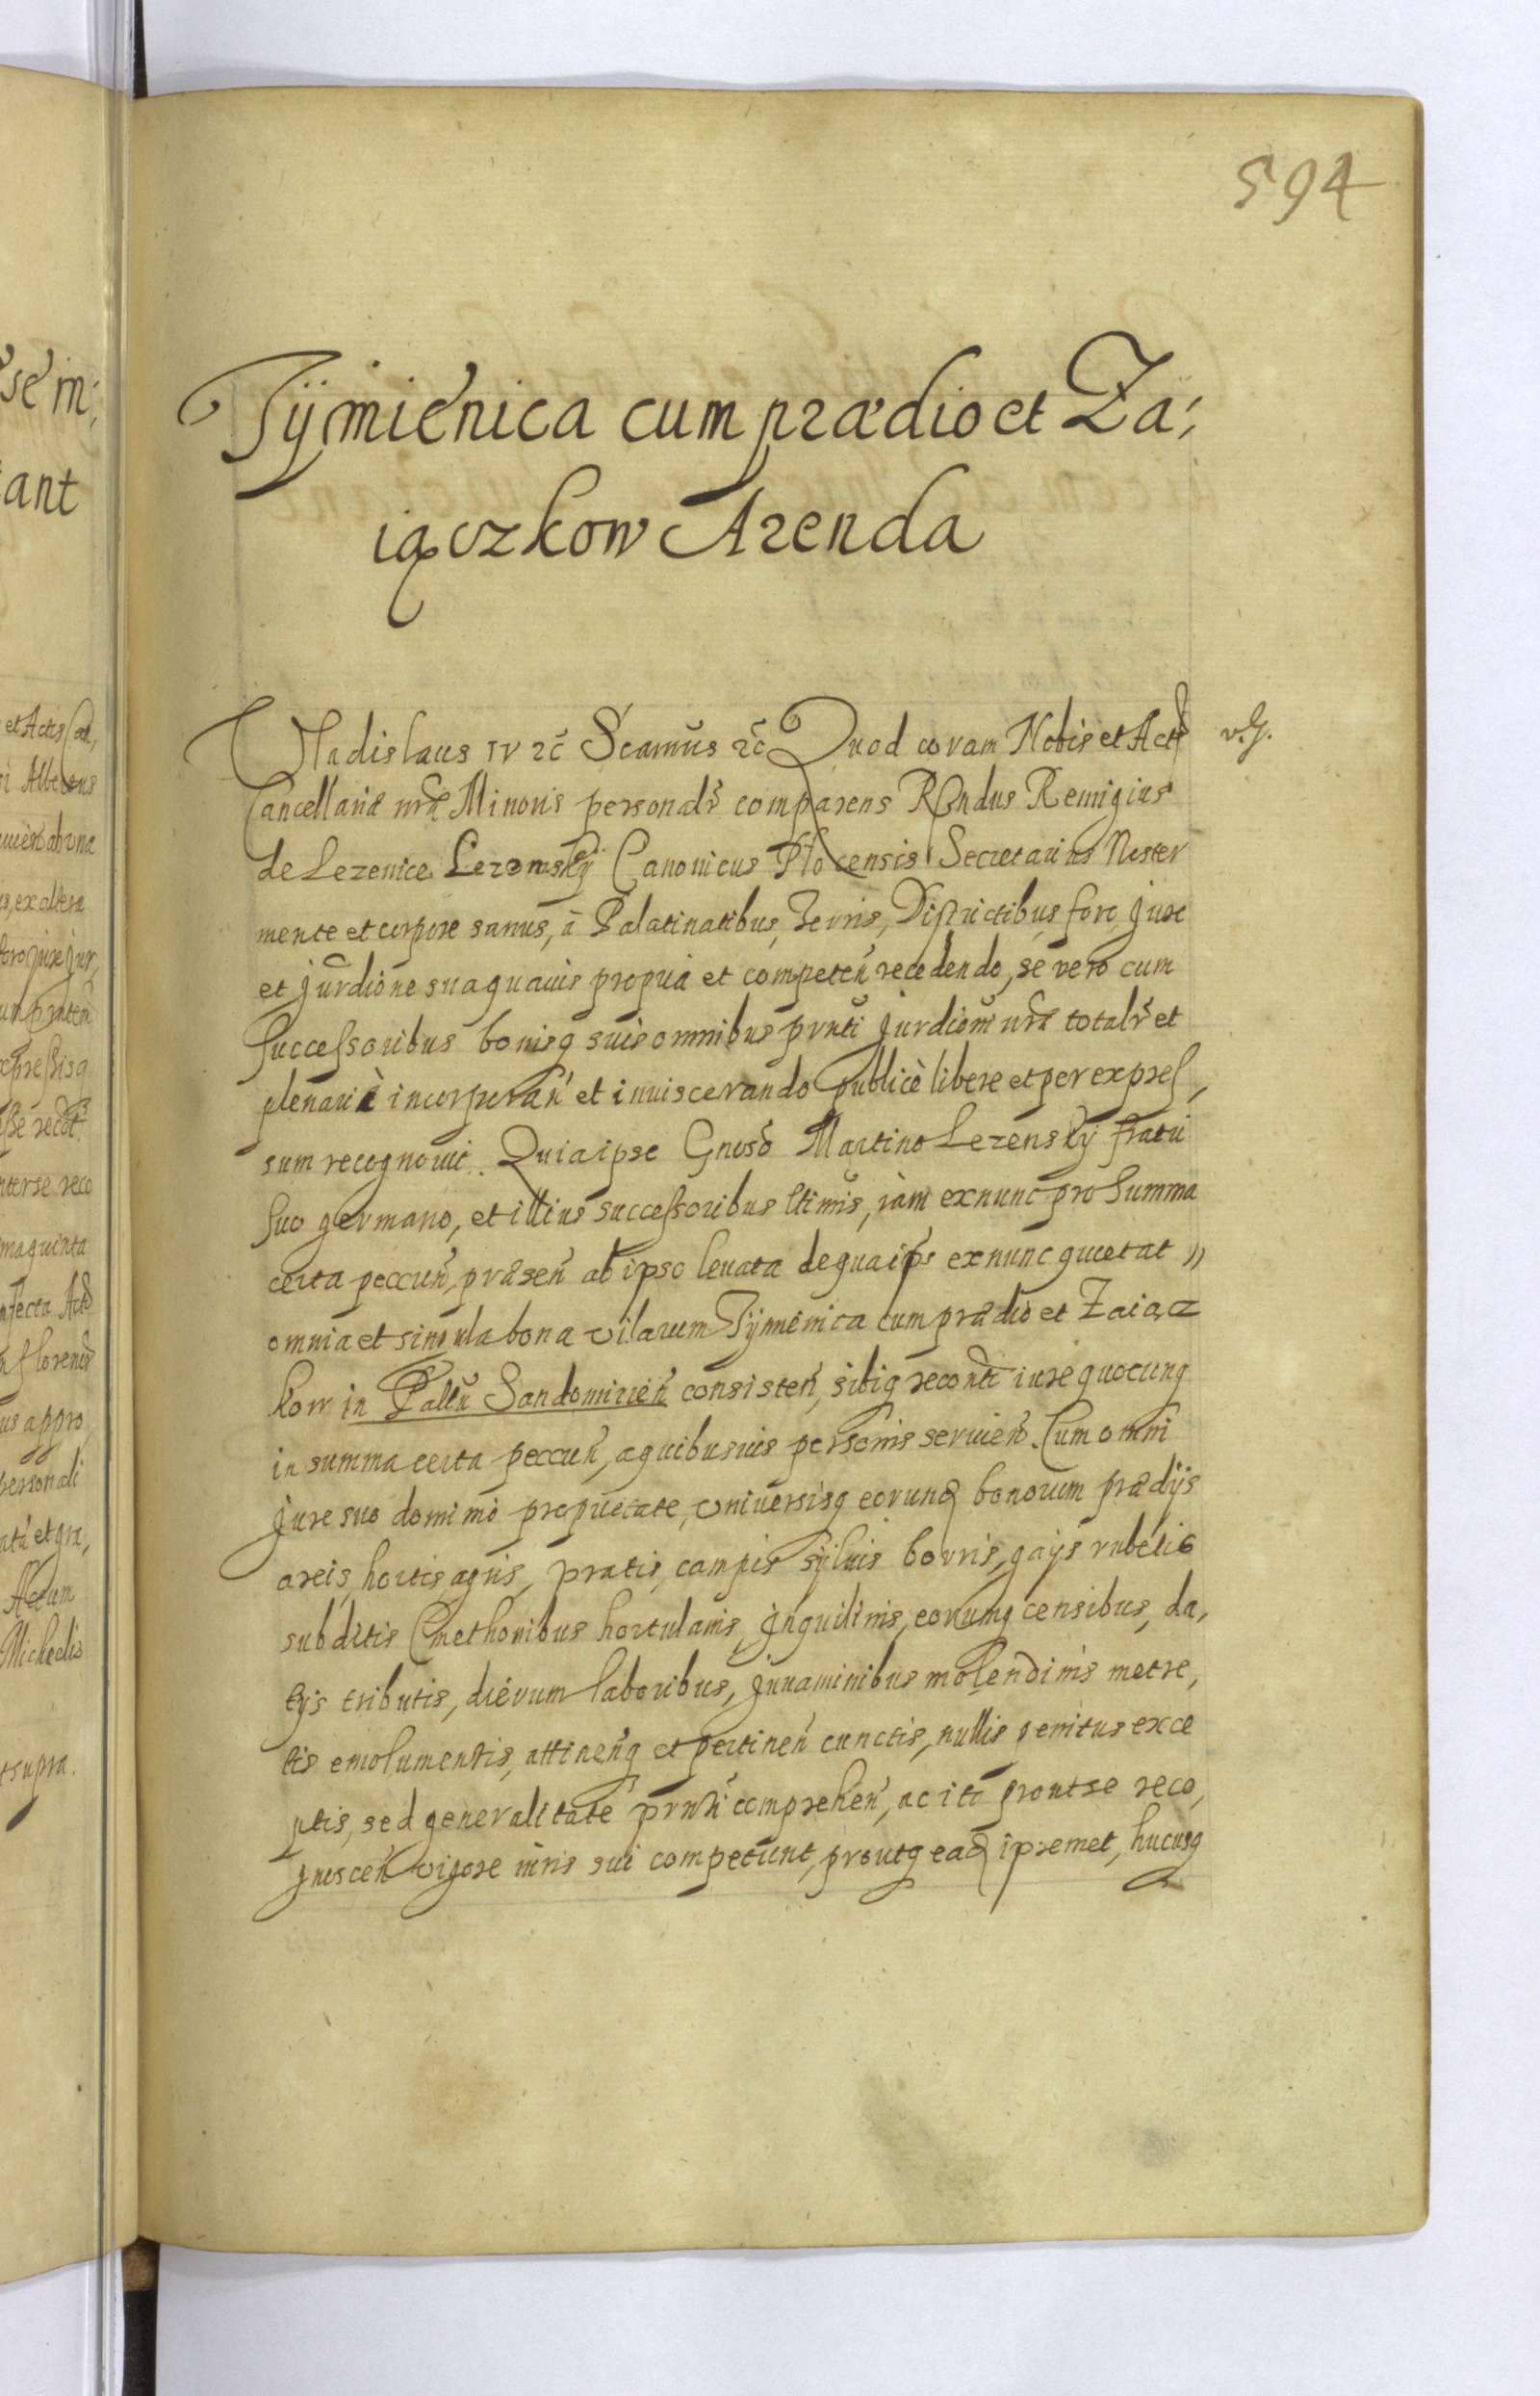 594
Tÿmienica cum prædio et Za,
iączkow Arenda
Vladislaus IV &c̃ Scamus̃ &c̃ Quod coram Nobis et Actis
v. G.
Cancellariæ nrã Minoris personalr̃ comparens Rñdus Remigius
de Lezenice Lezensky Canonicus Plocensis Secretarius Noster
mente et corpore sanus, à Palatinatibus, Terris, Districtibus, foro Jure
et Jurdione suaquauis propria et competen̄ recedendo, se vero cum
Successoribus bonisq suis omnibus prnti Jurdioni nrã totalr̃ et
plenariè incorporan̄ et inuiscerando publicè libere et per expres,
sum recognouit. Quia ipse Gnoso Martino Lezensky fratri
suo germano, et illius successoribus ltimis, iam exnunc pro summa
certa peccun̄, præsen̄ ab ipso leuata de qua ips exnunc quietat
omnia et singula bona villarum Tÿmienica cum prædio et Zaiącz
kow in Pallu Sandomirien̄ consisten̄, sibiq reconti iure quocunq
in summa certa peccun̄, aquibusuis personis seruien̄. Cum omni
Jure suo dominio proprietate, vniuersisq eorund bonorum prædÿs
areis, hortis, agris, pratis, campis sÿluis borris, gaÿs rubetis
subditis Cmethonibus hortulanis, Inquilinis, eorumq censibus, da,
tÿs tributis, dierum laboribus, Juuaminibus molendinis metre,
tis emolumentis, attinen̄q et pertinen̄ cunctis, nullis penitus exce
ptis, sed generalitate prnti comprehen̄, ac ita prout se reco,
gnoscen̄ vigore iuris sui competunt, proutq ead ipsemet, hucusq